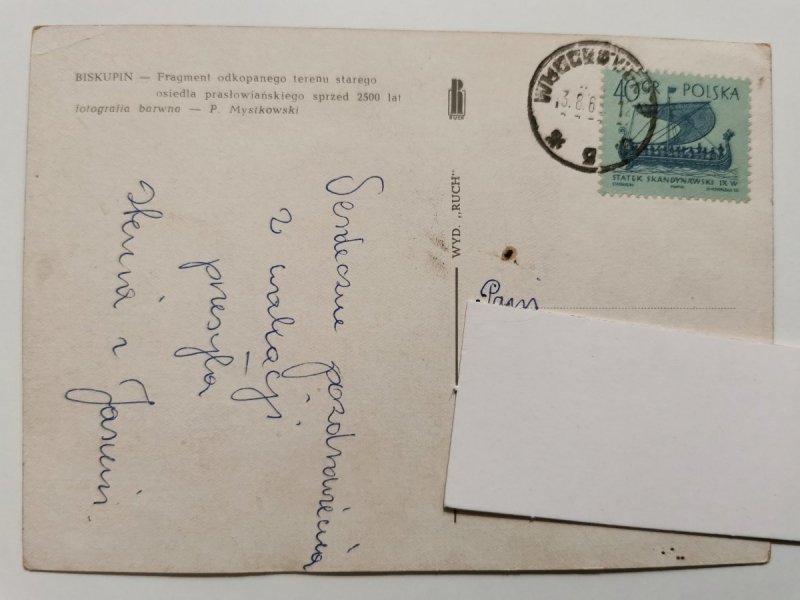 BISKUPIN — Fragment odkopanego terenu starego
osiedla prasłowiańskiego sprzed 2500 lat
fotografia barwna — P. Mystkowski
RUCH
WYD. „RUCH"
40 GR POLSKA
STATEK SKANDYNAWSKI IX W
3.8.6
Serdeczne pozdrowienia
z wakacji
przesyła
Henia z
Pani